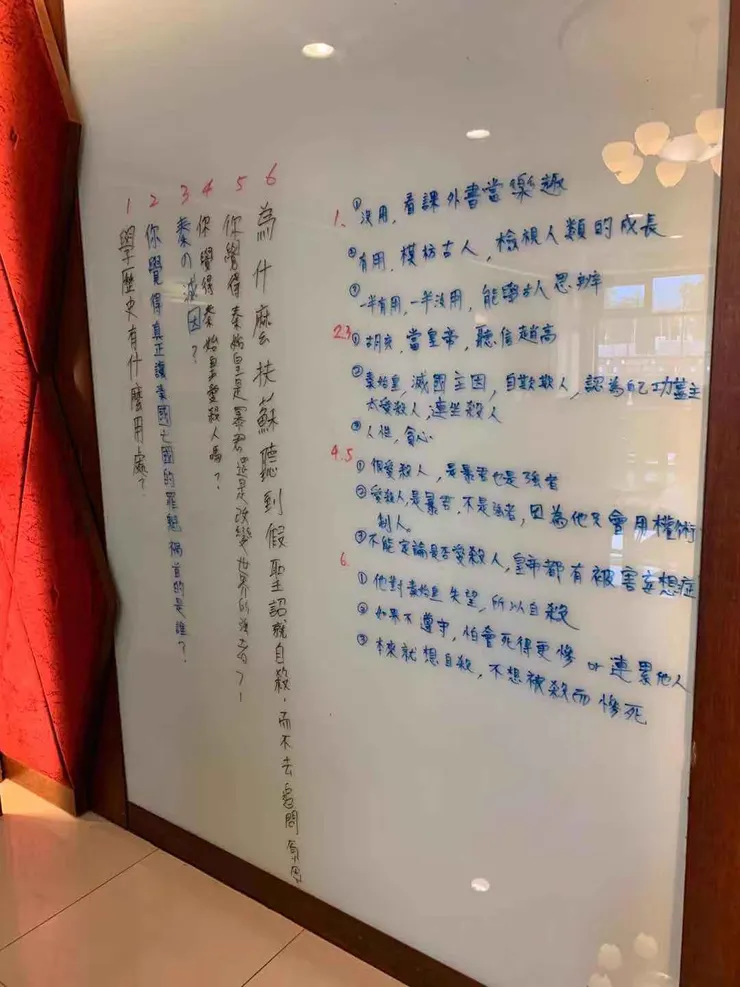 1 學歷史有什麼用處?
2 你覺得真正讓秦國亡國的罪魁禍首的是誰?
3 秦の滅因?
4 你覺得秦始皇愛殺人嗎?
5 你覺得秦始皇是暴君還是改變世界的強者?!
6 為什麼扶蘇聽到假聖詔就自殺,而不去質問原因
1. ①沒用,看課外書當樂趣
②有用,模仿古人,檢視人類的成長
③一半有用,一半沒用,能學古人思辨
2.3 ①胡亥,當皇帝,聽信趙高
②秦始皇,滅國主因,自欺欺人,認為自己功蓋主
太愛殺人,連坐殺人
③人性,貪心
4.5 ①很愛殺人,是暴君也是強者
②愛殺人,是暴君,不是強者,因為他只會用權術
制人。
③不能定論是否愛殺人,皇帝都有被害妄想症
6. ①他對秦始皇失望,所以自殺
②如果不遵守,怕會死得更慘 or 連累他人
③本來就想自殺,不想被殺而慘死